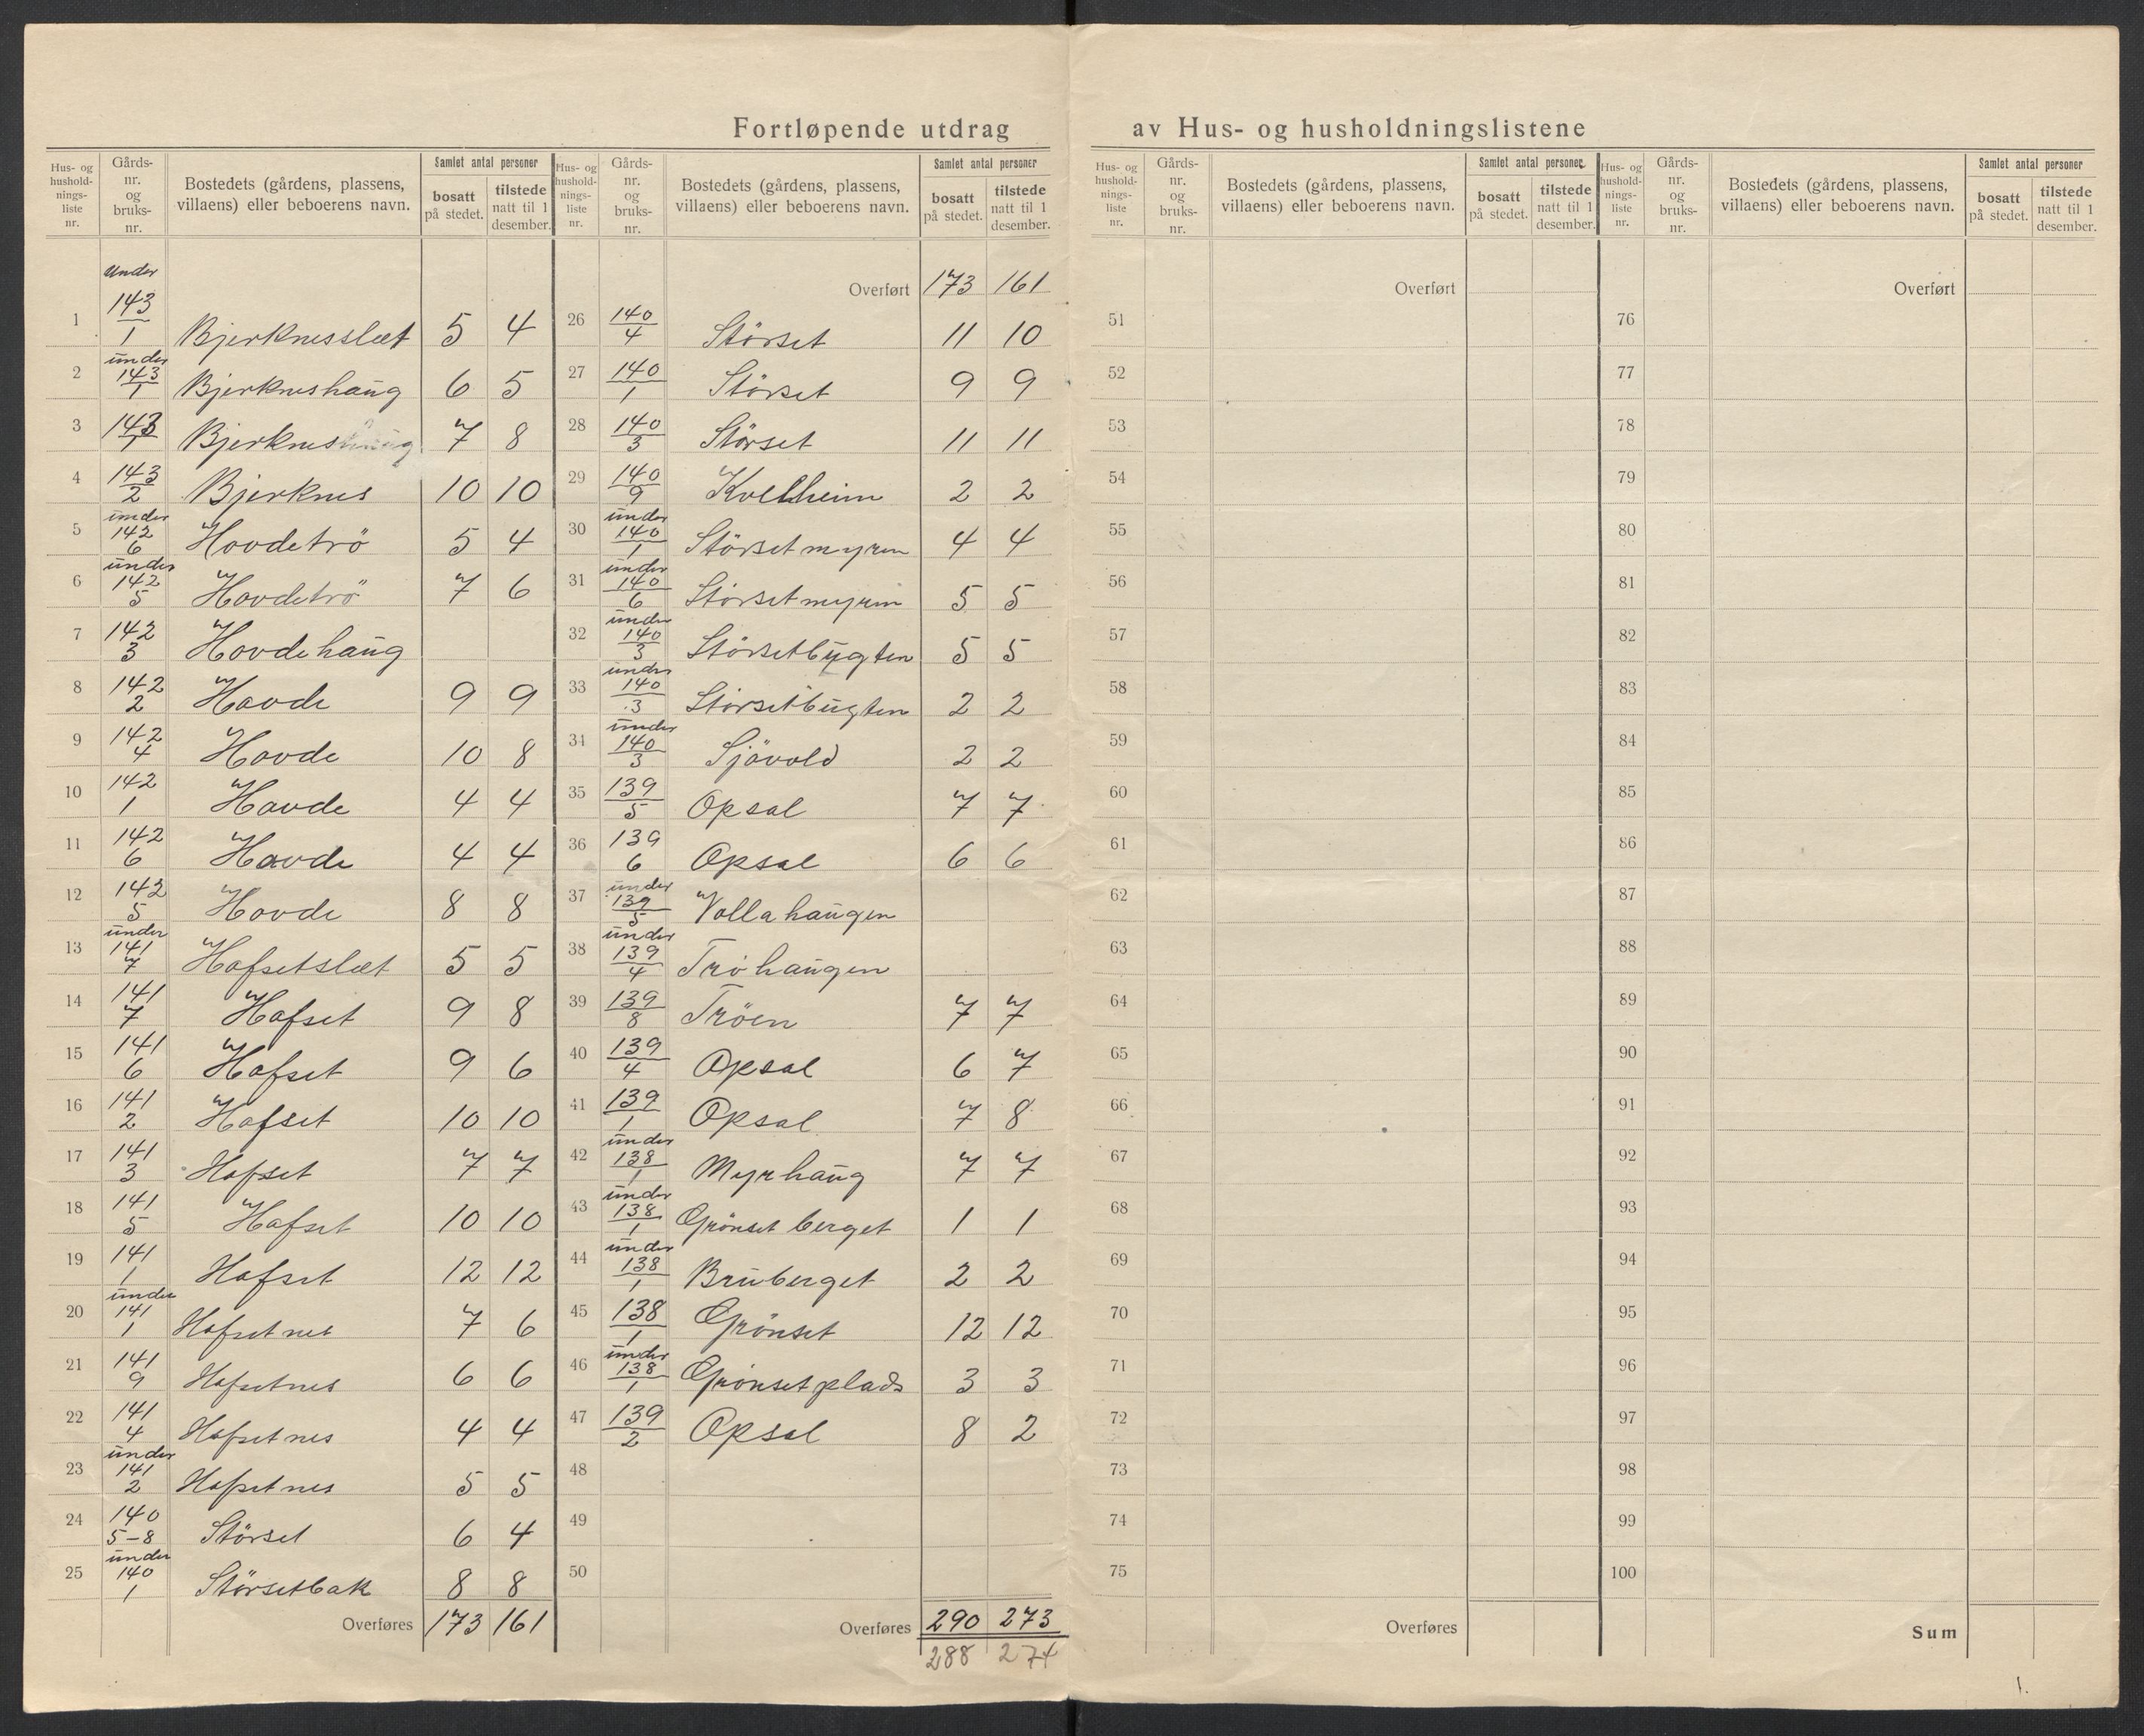 Fortløpende utdrag av Hus- og husholdningslistene
Hus- og hushold-nings-liste nr. | Gårds-nr. og bruks-nr. | Bostedets (gårdens, plassens, villaens) eller beboerens navn. | Samlet antal personer bosatt på stedet. | tilstede natt til 1 desember.
1 | Under 143/1 | Bjerknesslæt | 5 | 4
2 | under 143/1 | Bjerkneshaug | 6 | 5
3 | 143/1 | Bjerknes | 7 | 8
4 | 143/2 | Bjerknes | 10 | 10
5 | under 142/6 | Hovdetrö | 5 | 4
6 | under 142/5 | Hovdetrö | 7 | 6
7 | 142/3 | Hovdehaug
8 | 142/2 | Hovde | 9 | 9
9 | 142/4 | Hovde | 10 | 8
10 | 142/1 | Hovde | 4 | 4
11 | 142/6 | Hovde | 4 | 4
12 | 142/5 | Hovde | 8 | 8
13 | under 141/7 | Hafsetslæt | 5 | 5
14 | 141/7 | Hafset | 9 | 8
15 | 141/6 | Hafset | 9 | 6
16 | 141/2 | Hafset | 10 | 10
17 | 141/3 | Hafset | 7 | 7
18 | 141/5 | Hafset | 10 | 10
19 | 141/1 | Hafset | 12 | 12
20 | under 141/1 | Hafsetnes | 7 | 6
21 | 141/9 | Hafsetnes | 6 | 6
22 | 141/4 | Hafsetnes | 4 | 4
23 | under 141/2 | Hafsetnes | 5 | 5
24 | 140/5-8 | Störset | 6 | 4
25 | under 140/1 | Störsetbak | 8 | 8
Overføres 173 161
Hus- og hushold-nings-liste nr. | Gårds-nr. og bruks-nr. | Bostedets (gårdens, plassens, villaens) eller beboerens navn. | Samlet antal personer bosatt på stedet. | tilstede natt til 1 desember.
Overført 173 161
26 | 140/4 | Störset | 11 | 10
27 | 140/1 | Störset | 9 | 9
28 | 140/3 | Störset | 11 | 11
29 | 140/9 | Kvelheim | 2 | 2
30 | under 140/1 | Störsetmyren | 4 | 4
31 | under 140/6 | Störsetmyren | 5 | 5
32 | under 140/3 | Störsetbugten | 5 | 5
33 | under 140/3 | Störsetbugten | 2 | 2
34 | under 140/3 | Sjövold | 2 | 2
35 | 139/5 | Opsal | 7 | 7
36 | 139/6 | Opsal | 6 | 6
37 | under 139/5 | Vollahaugen
38 | under 139/4 | Tröhaugen
39 | 139/8 | Tröen | 7 | 7
40 | 139/4 | Opsal | 6 | 7
41 | 139/1 | Opsal | 7 | 8
42 | under 138/1 | Myrhaug | 7 | 7
43 | under 138/1 | Grönsetberget | 1 | 1
44 | under 138/1 | Bruberget | 2 | 2
45 | 138/1 | Grönset | 12 | 12
46 | under 138/1 | Grönsetplads | 3 | 3
47 | 139/2 | Opsal | 8 | 2
48
49
50
Overføres 290 273
288 274
Hus- og hushold-nings-liste nr. | Gårds-nr. og bruks-nr. | Bostedets (gårdens, plassens, villaens) eller beboerens navn. | Samlet antal personer bosatt på stedet. | tilstede natt til 1 desember.
Overført
51
52
53
54
55
56
57
58
59
60
61
62
63
64
65
66
67
68
69
70
71
72
73
74
75
Overføres
Hus- og hushold-nings-liste nr. | Gårds-nr. og bruks-nr. | Bostedets (gårdens, plassens, villaens) eller beboerens navn. | Samlet antal personer bosatt på stedet. | tilstede natt til 1 desember.
Overført
76
77
78
79
80
81
82
83
84
85
86
87
88
89
90
91
92
93
94
95
96
97
98
99
100
Sum
1.